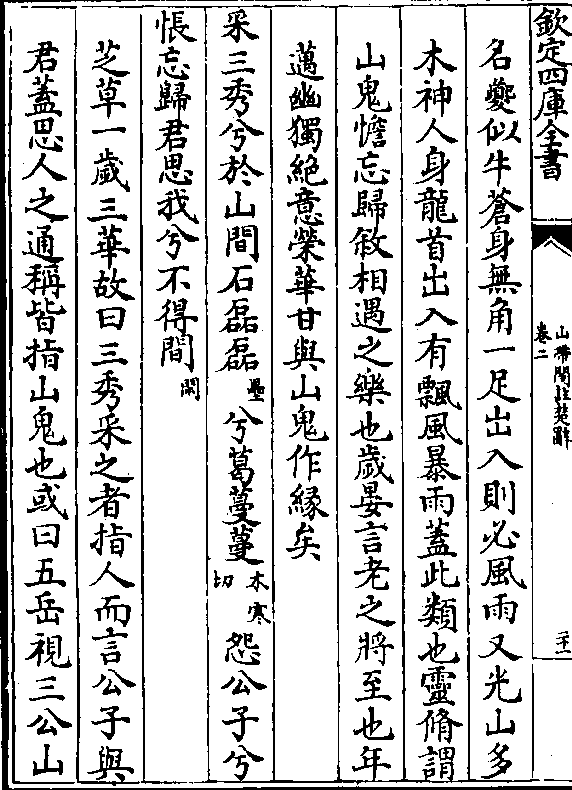 欽定四庫全書
山帶閣註楚辭
卷二
二十一
名夔似牛蒼身無角一足出入則必風雨又光山多
木神人身龍首出入有飄風暴雨蓋此類也靈脩謂
山鬼憺忘歸敘相遇之樂也歲晏言老之將至也年
邁幽獨絶意榮華甘與山鬼作緣矣
采三秀兮於山間石磊磊壘兮葛蔓蔓木寒切怨公子兮
悵忘歸君思我兮不得間閑
芝草一歲三華故曰三秀采之者指人而言公子與
君蓋思人之通稱皆指山鬼也或曰五岳視三公山